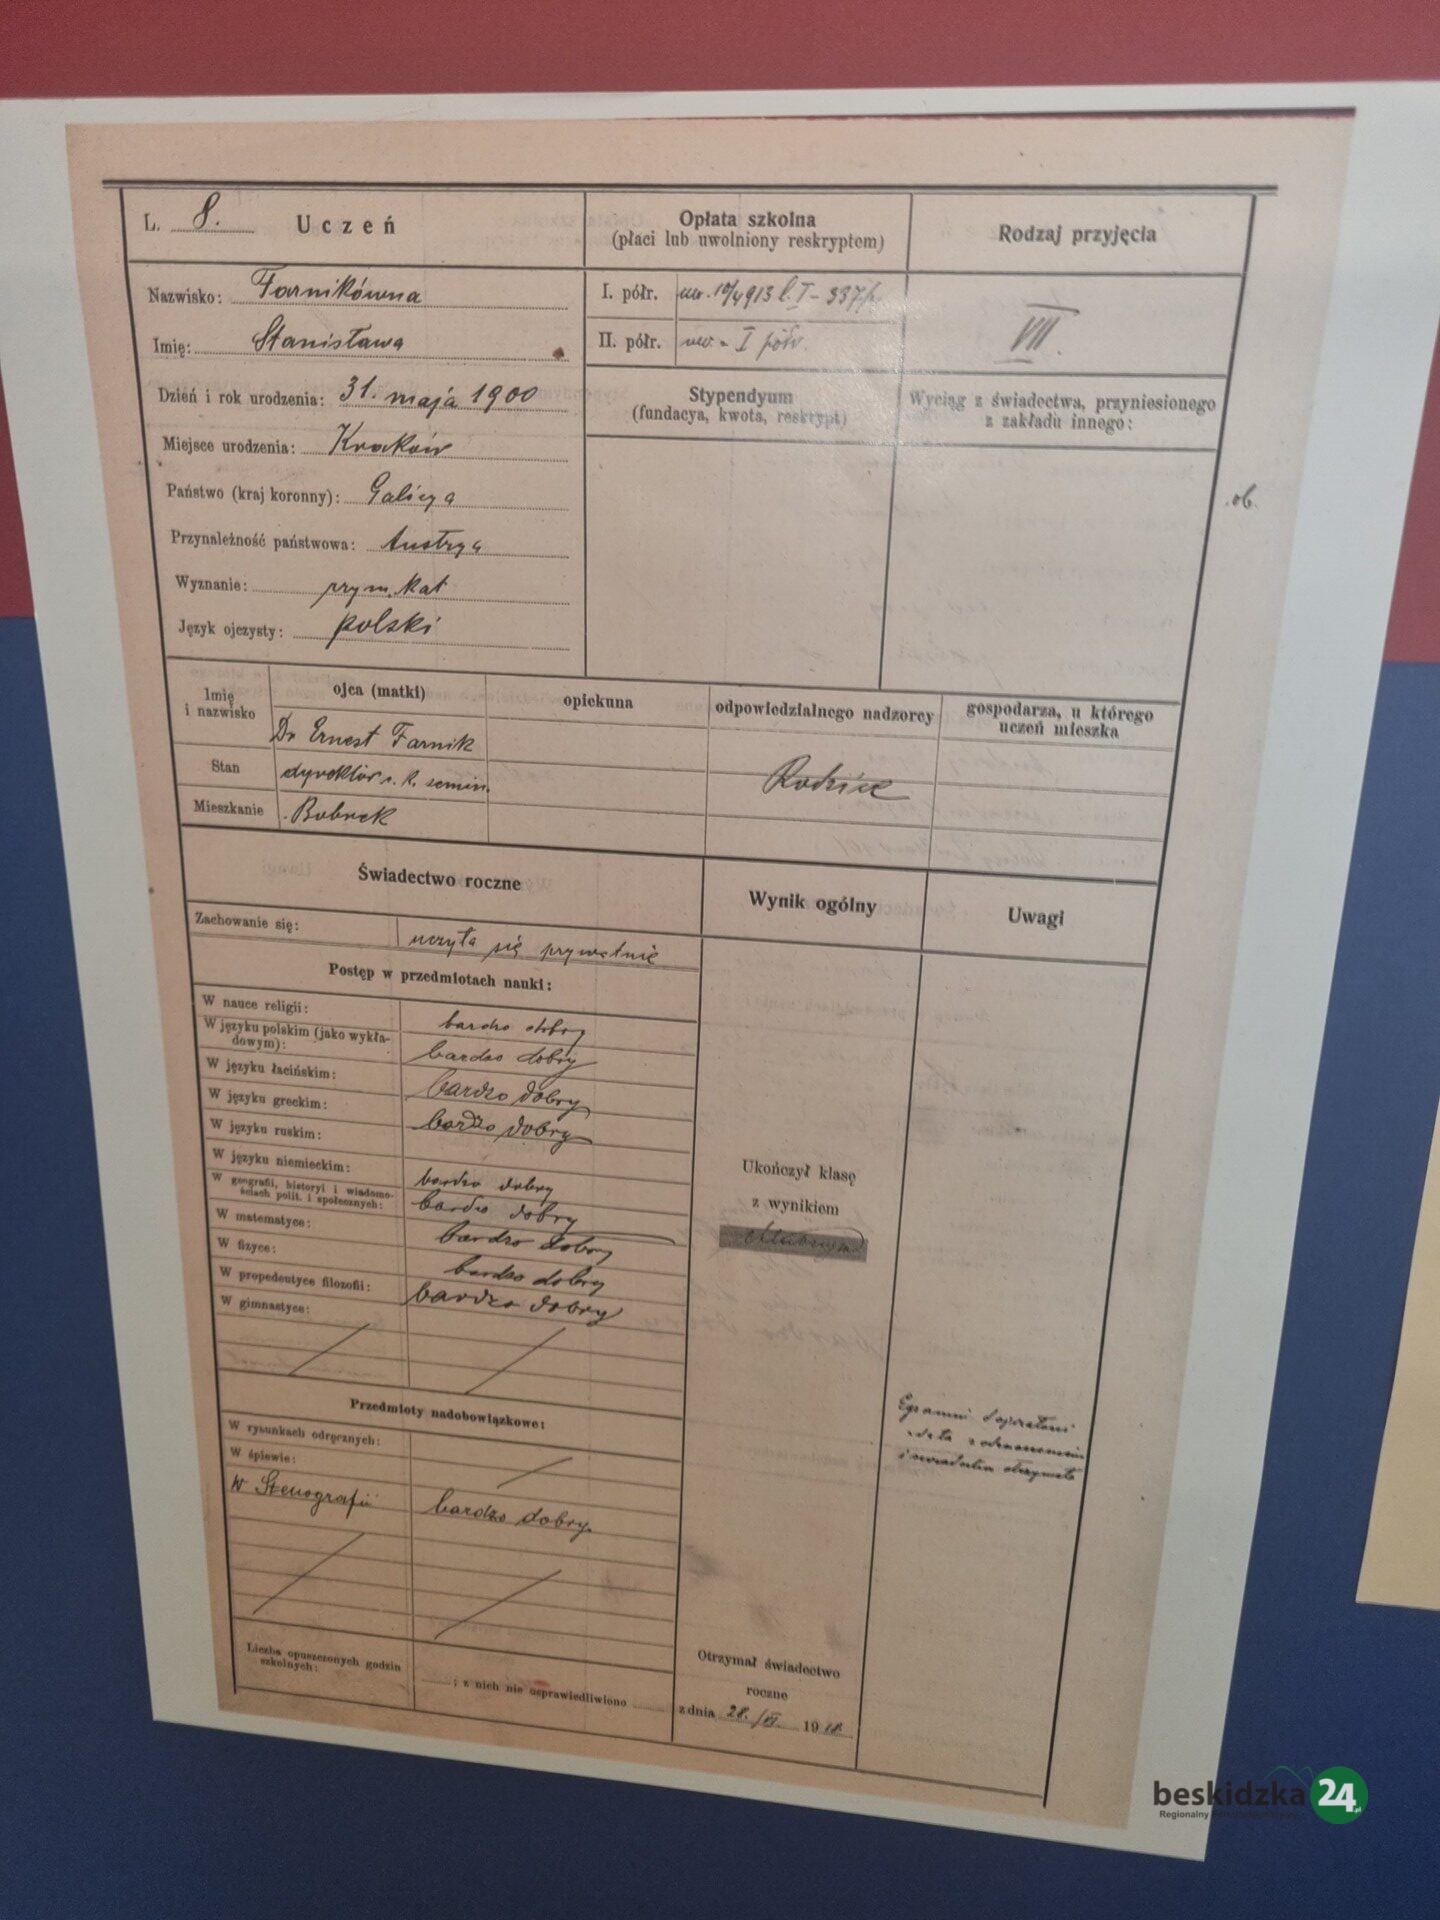 L. 8. Uczeń
Opłata szkolna
(płaci lub uwolniony reskryptem)
Rodzaj przyjęcia
Nazwisko: Farnikówna
Imię: Stanisława
Dzień i rok urodzenia: 31. maja 1900
Miejsce urodzenia: Kraków
Państwo (kraj koronny): Galicya
Przynależność państwowa: Austrya
Wyznanie: rzym. kat
Język ojczysty: polski
I. półr. uw. 10/4 913 l. I - 337/
II. półr. uw. I półr.
VII.
Stypendyum
(fundacya, kwota, reskrypt)
Wyciąg z świadectwa, przyniesionego
z zakładu innego:
ob.
Imię
i nazwisko
ojca (matki)
opiekuna
odpowiedzialnego nadzorcy
gospodarza, u którego
uczeń mieszka
Dr Ernest Farnik
Stan dyrektor c. k. semin.
Rodzice
Mieszkanie Bobrek
Świadectwo roczne
Wynik ogólny
Uwagi
Zachowanie się: uczyła się prywatnie
Postęp w przedmiotach nauki:
W nauce religii: bardzo dobry
W języku polskim (jako wykła-
dowym): bardzo dobry
W języku łacińskim: bardzo dobry
W języku greckim: bardzo dobry
W języku ruskim:
W języku niemieckim: bardzo dobry
W geografii, historyi i wiadomo-
ściach polit. i społecznych: bardzo dobry
W matematyce: bardzo dobry
W fizyce: bardzo dobry
W propedeutyce filozofii: bardzo dobry
W gimnastyce:
Ukończył klasę
z wynikiem
chlubnym
Przedmioty nadobowiązkowe:
W rysunkach odręcznych:
W śpiewie:
W Stenografii bardzo dobry.
Egzamin
z odznaczeniem
i świadectwo otrzymała
Liczba opuszczonych godzin
szkolnych: ; z nich nie osprawiedliwiono
Otrzymał świadectwo
roczne
z dnia 28. /VI. 1918.
beskidzka24.pl
Regionalny